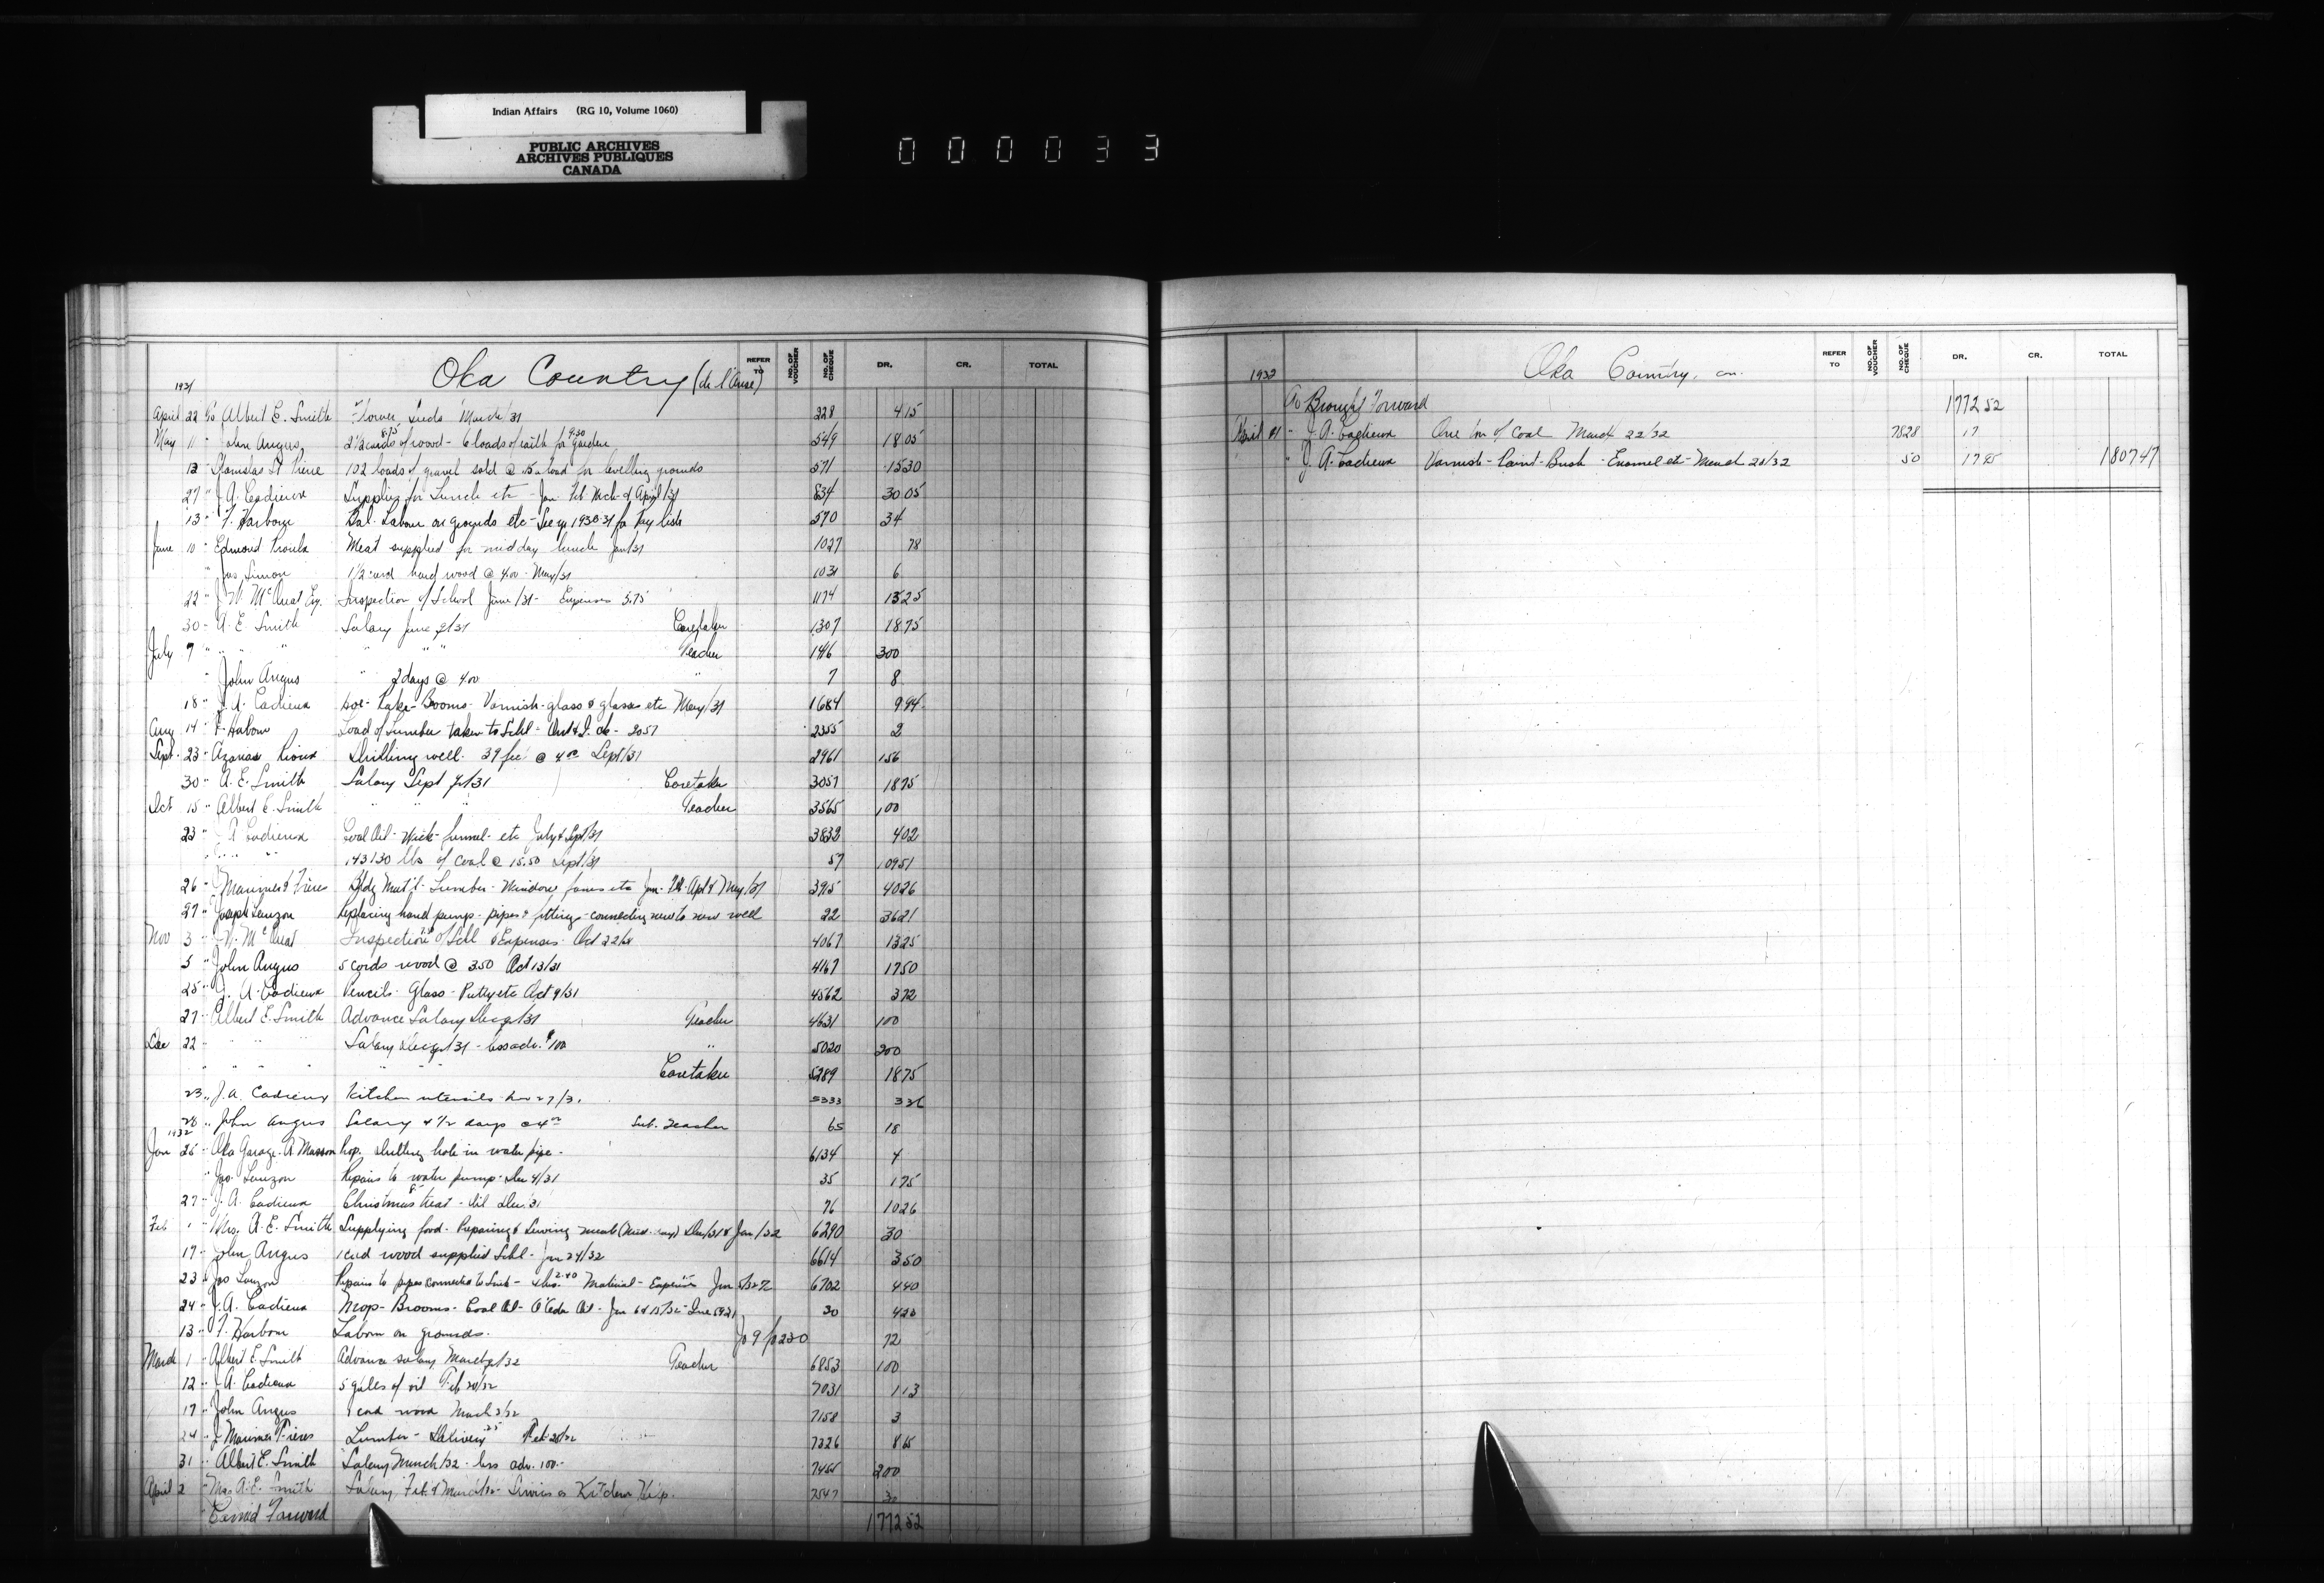 Indian Affairs (RG 10, Volume 1060)
PUBLIC ARCHIVES
ARCHIVES PUBLIQUES
CANADA
000033
Oka Country (de l'Anse)
REFER TO NO. OF VOUCHER NO. OF CHEQUE DR. CR. TOTAL
1931
April 22 To Albert E. Smith Flower Seeds March/31 228 4 15
May 11 " John Angus 2 1/2 cords of wood 8.75 - 6 loads of earth for garden 9.30 549 18 05
12 Stanislas St Pierre 102 loads of gravel sold @ .15 a load for levelling grounds 571 15 30
27 " J. A. Cadieux Supplies for Lunch etc - Jan. Feb. Mch & April/31 834 30 05
13 " F. Harbour Bal. Labour on grounds etc - See 1930-31 for Pay lists 570 34
June 10 " Edmond Proulx Meat supplied for midday lunch Jan/31 1027 78
" Jas Simon 1 1/2 cord hard wood @ 4.00 - May/31 1031 6
22 " J. W. McOuat Esq. Inspection of School June/31 - Expenses 5.75 1174 13 25
30 - A. E. Smith Salary June q/31 Caretaker 1307 18 75
July 7 " " " " " " Teacher 1416 300
" John Angus " 2 days @ 4.00 " 7 8
18 " J. A. Cadieux Hoe - Rake - Brooms - Varnish - glass & glasses etc May/31 1684 9 94
Aug 14 " F. Harbour Load of Lumber taken to Schl - 2355 2
Sept. 23 - Azarias Rioux Drilling well - 39 feet @ 4.00 Sept/31 2961 156
30 - A. E. Smith Salary Sept q/31 Caretaker 3057 18 75
Oct 15 " Albert E. Smith " " " Teacher 3565 100
23 - J. A. Cadieux Coal Oil - Wick - funnel - etc July & Sept/31 3832 4 02
" " " " 143130 lbs of Coal @ 15.50 Sept/31 57 109 51
26 " Marinier & Frères Bldg Mat'l - Lumber - Window panes etc Jan - Feb - Apl & May/31 3915 40 26
27 - Joseph Lauzon Replacing hand pump - pipes & fittings - connecting new to new well 22 36 21
Nov 3 - J. W. McOuat Inspection of Schl & Expenses Oct 22/31 4067 13 25
5 " John Angus 5 cords wood @ 3.50 Oct 13/31 4167 17 50
25 " J. A. Cadieux Pencils - Glass - Putty etc Oct 9/31 4562 3 72
27 - Albert E. Smith Advance Salary Dec q/31 Teacher 4631 100
Dec 22 - " " " Salary Dec q/31 - less adv. $100 " 5020 200
" " " " " " Caretaker 5289 18 75
23 " J. A. Cadieux Kitchen utensils Nov 27/31 5333 3 36
28 " John Angus Salary 4 1/2 days @ 4.00 Sub. Teacher 65 18
1932
Jan 26 - Oka Garage - A. Masson Prop. Drilling hole in water pipe - 6134 4
" Jos. Lauzon Repairs to water pump - Dec 4/31 35 1 75
27 - J. A. Cadieux Christmas treat - Oil Dec 31 76 10 26
Feb " - Mrs. A. E. Smith Supplying food - Preparing & Serving meals Dec/31 & Jan/32 6290 30
17 - John Angus 1 cord wood supplied Schl - Jan 24/32 6614 3 50
23 " Jos Lauzon Repairs to pipes connected to Sink - 2.40 Material - Expenses Jan 5/32 6702 4 40
24 - J. A. Cadieux Mop - Brooms - Coal Oil - O'Cedar Oil - Jan 6 & 15/32 30 4 20
13 - F. Harbour Labour on grounds - 72
March 1 - Albert E. Smith Advance salary March q/32 Teacher 6853 100
12 - J. A. Cadieux 5 galls of oil Feb 20/32 7031 1 13
17 - John Angus 1 cord wood March 2/32 7158 3
24 - J. Marinier Frères Lumber - Delivery Feb 7326 8 15
31 - Albert E. Smith Salary March/32 - less adv. 100 - 7455 200
April 2 - Mrs. A. E. Smith Salary Feb & March/32 - Services as Kitchen Help. 2547 30
Carried Forward 1772 52
1932
Oka Country, con.
REFER TO NO. OF VOUCHER NO. OF CHEQUE DR. CR. TOTAL
To Brought Forward 1772 52
April 21 - J. A. Cadieux One ton of Coal March 22/32 7828 17
" J. A. Cadieux Varnish - Paint - Brush - Enamel etc - March 20/32 50 17 95 1807 47